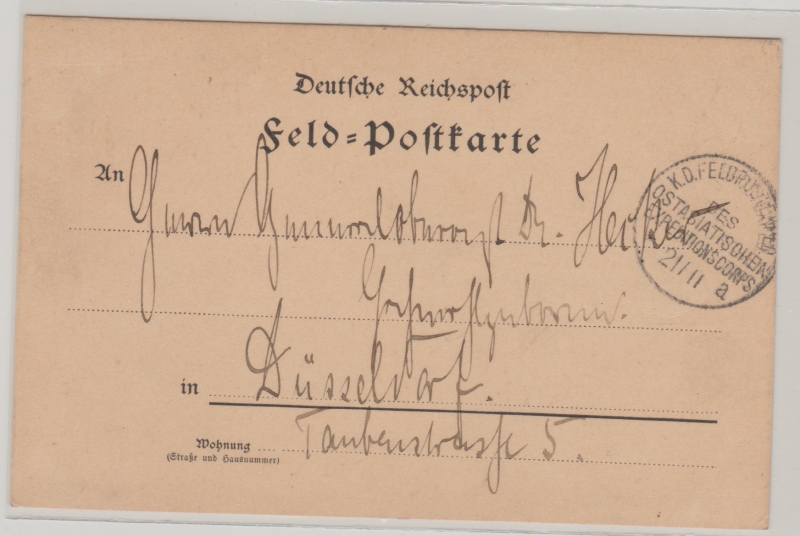 Deutsche Reichspost
Feld=Postkarte
An Herrn Generaloberarzt Dr. Hecker
Hochwohlgeboren.
in Düsseldorf.
Wohnung Taubenstrasse 5.
(Straße und Hausnummer)
K.D.FELDPOSTEXPED
DES
OSTASIATISCHEN
EXPEDITIONSCORPS
21/11
a